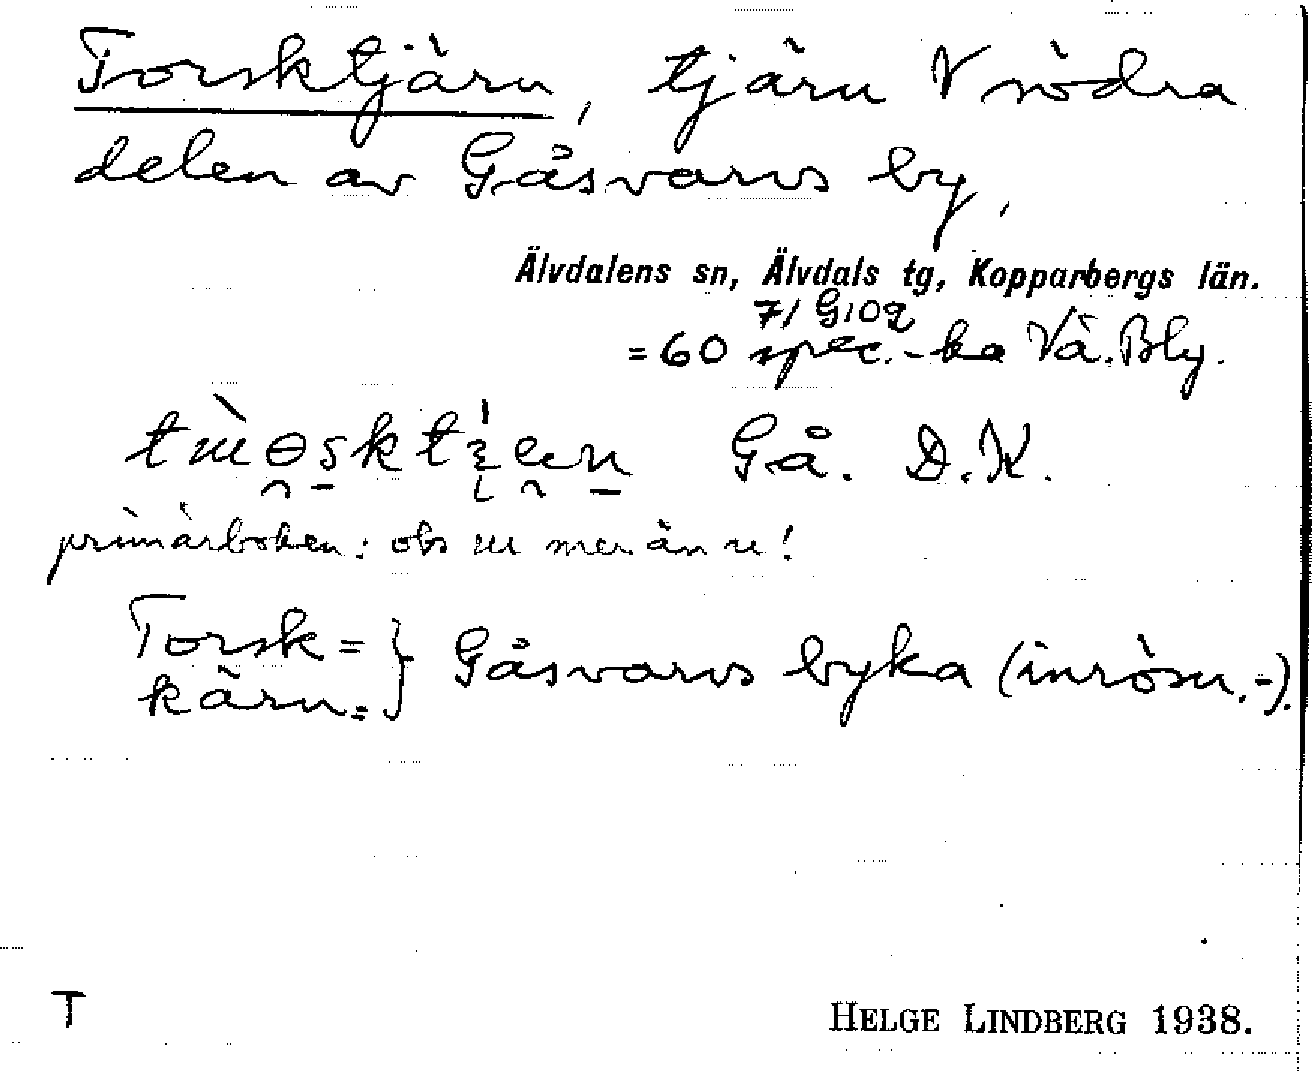 Torsktjärn, tjärn V södra
delen av Gåsvarvs by,
Älvdalens sn, Älvdals tg, Kopparbergs län.
71 G10q
= 60 spec.-ka Vä. Bly.
Gå. D.K.
primärboken: obs ɯ mer än u!
Torsk=
kärn= } Gåsvarvs byka (inrösn.-).
T
HELGE LINDBERG 1938.